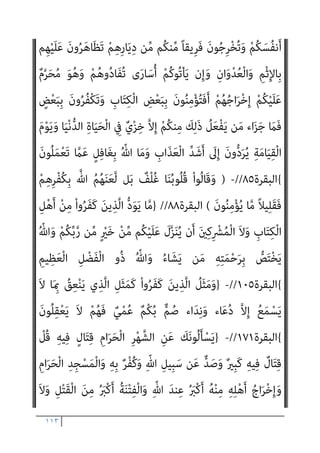 أَنفُسَكُمْ وَتُخْرِجُونَ فَرِيقاً مِّنكُم مِّن دِيَارِهِمْ تَظَاهَرُونَ عَلَيْهِم
بِالإِثْمِ وَالْعُدْوَانِ وَإِن يَأْتُوكُمْ أُسَارَى تُفَادُوهُمْ وَهُوَ مُحَرَّمٌ
عَلَيْكُمْ إِخْرَاجُهُمْ أَفَتُؤْمِنُونَ بِبَعْضِ الْكِتَابِ وَتَكْفُرُونَ بِبَعْضٍ
فَمَا جَزَاء مَن يَفْعَلُ ذَلِكَ مِنكُمْ إِلاَّ خِزْيٌ فِي الْحَيَاةِ الدُّنْيَا وَيَوْمَ
الْقِيَامَةِ يُرَدُّونَ إِلَى أَشَدِّ الْعَذَابِ وَمَا اللّهُ بِغَافِلٍ عَمَّا تَعْمَلُونَ
{البقرة٨٥//-( وَقَالُواْ قُلُوبُنَا غُلْفٌ بَل لَّعَنَهُمُ اللَّه بِكُفْرِهِمْ
فَقَلِيلاً مَّا يُؤْمِنُونَ ) البقرة٨٨//{مَّا يَوَدُّ الَّذِينَ كَفَرُواْ مِنْ أَهْلِ
الْكِتَابِ وَلاَ الْمُشْرِكِينَ أَن يُنَزَّلَ عَلَيْكُم مِّنْ خَيْرٍ مِّن رَّبِّكُمْ وَاللّهُ
يَخْتَصُّ بِرَحْمَتِهِ مَن يَشَاءُ وَاللّهُ ذُو الْفَضْلِ الْعَظِيمِ
{البقرة١٠٥//-{وَمَثَلُ الَّذِينَ كَفَرُواْ كَمَثَلِ الَّذِي يَنْعِقُ بِمَا لاَ
يَسْمَعُ إِلاَّ دُعَاء وَنِدَاء صُمٌّ بُكْمٌ عُمْيٌ فَهُمْ لاَ يَعْقِلُونَ
{البقرة١٧١//-{يَسْأَلُونَكَ عَنِ الشَّهْرِ الْحَرَامِ قِتَالٍ فِيهِ قُلْ
قِتَالٌ فِيهِ كَبِيرٌ وَصَدٌّ عَن سَبِيلِ اللّهِ وَكُفْرٌ بِهِ وَالْمَسْجِدِ الْحَرَامِ
وَإِخْرَاجُ أَهْلِهِ مِنْهُ أَكْبَرُ عِندَ اللّهِ وَالْفِتْنَةُ أَكْبَرُ مِنَ الْقَتْلِ وَلاَ
١١٣